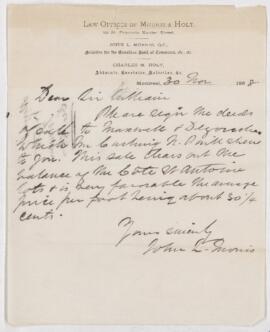 LAW OFFICE OF MORRIS & HOLT,
JOHN L. MORRIS, Q.C.,
Solicitor for the Canadian Bank of Commerce, &c., &c.
CHARLES M. HOLT,
Advocate, Barrister, Solicitor, &c.
Montreal, 30 Nov 1888
Dear Sir William
Please sign the deeds
of Sale to Maxwell &
which Mr Cushing N.P. will show
to you. This sale clears out the
balance of the Côte St Antoine
lots & is very favorable the average
price per foot being about 30 1/4
cents.
Yours sincerely
John L. Morris